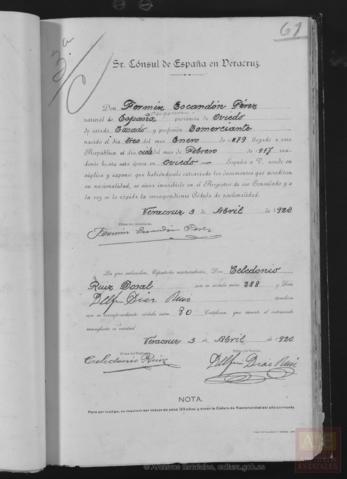 61
Sr. Cónsul de España en Veracruz.
Don Fermín Escandón Pérez
natural de España provincia de Oviedo
de estado Casado y profesión Comerciante
nacido el día tres del mes Enero de 879 llegado a esta
República el día del mes de Febrero de 917
hasta esta época en Oviedo a V.
suplica y expone que habiéndose extraviado los documentos que acreditan
su nacionalidad, se sirva inscribirlo en el Registro de ese Consulado y a
la vez se le expida la correspondiente Cédula de nacionalidad.
Veracruz 3 de Abril de 1920
Fermín Escandón Pérez
Los que suscriben, Españoles matriculados, Don Celedonio
Ruiz Dosal con su cédula núm. 288 y Don
Díaz
con su correspondiente cédula núm. 90 Certifican que consta el
manifiesto es verdad.
Veracruz 3 de Abril de 1920
Celedonio Ruiz
Díaz
NOTA.
© Archivos Estatales, cultura.gob.es